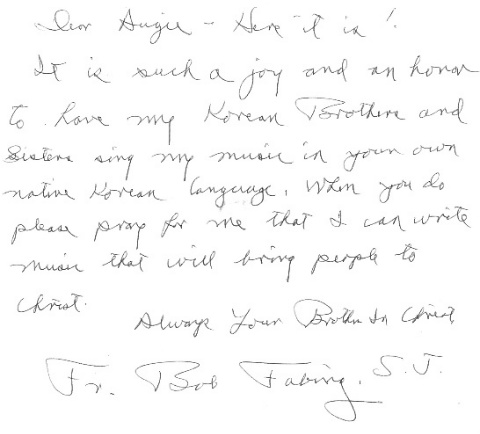 Dear Augie - Here it is!
It is such a joy and an honor
to have my Korean Brothers and
Sisters sing my music in your own
native Korean language. When you do
please pray for me that I can write
music that will bring people to
Christ.
Always Your Brother In Christ
Fr. Bob Fabing, S.J.